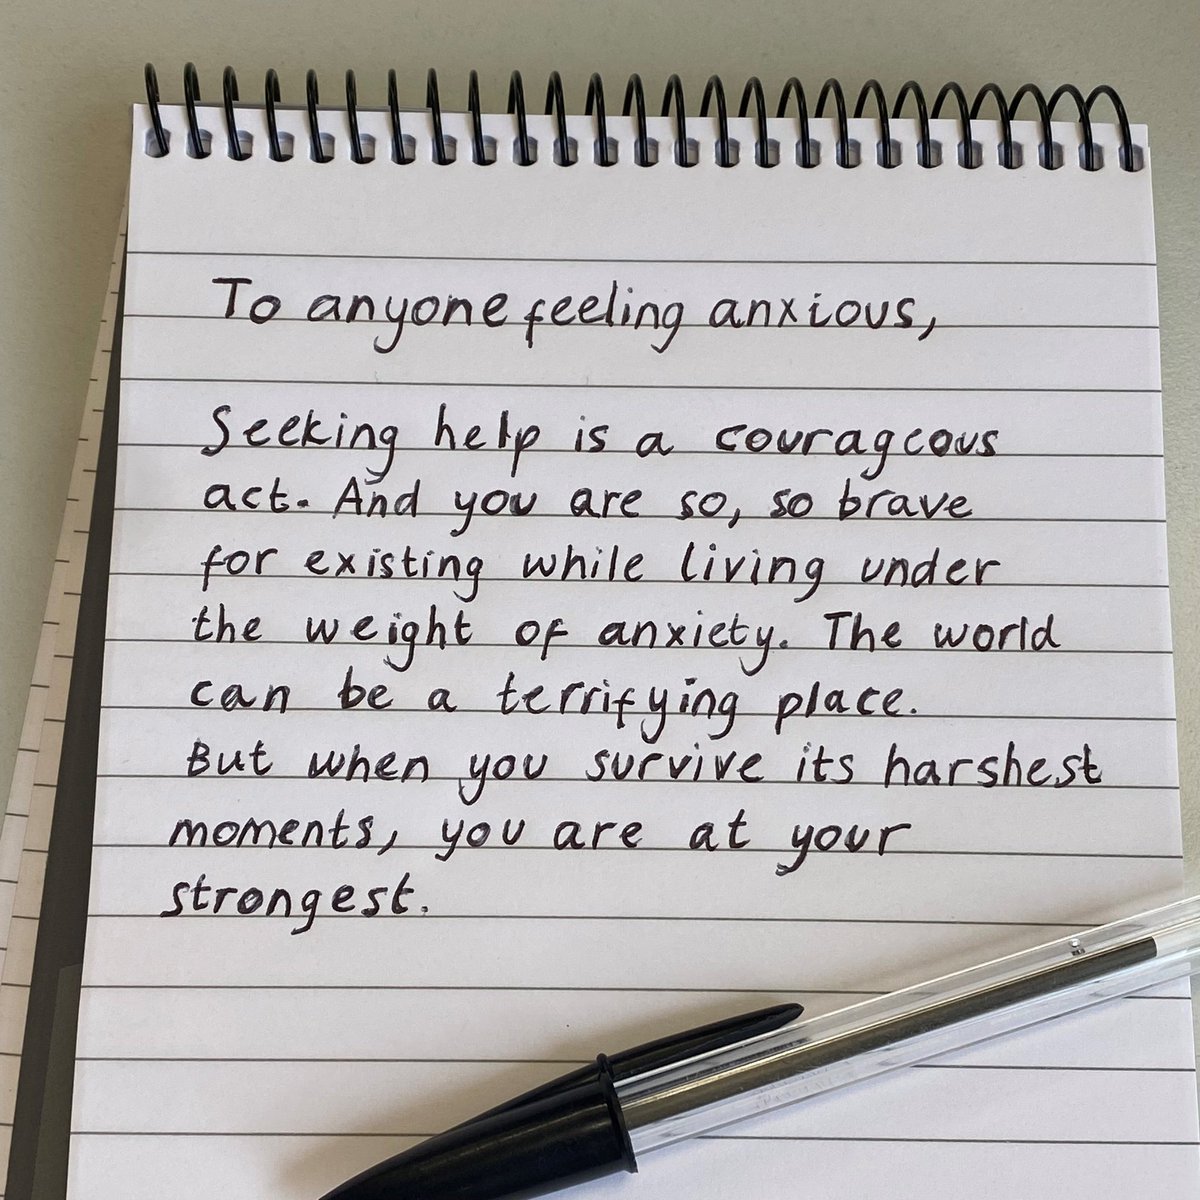 To anyone feeling anxious,
Seeking help is a courageous
act. And you are so, so brave
for existing while living under
the weight of anxiety. The world
can be a terrifying place.
But when you survive its harshest
moments, you are at your
strongest.